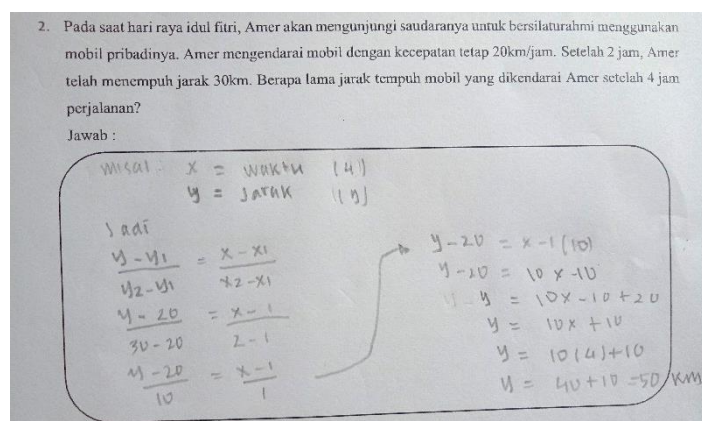 2. Pada saat hari raya idul fitri, Amer akan mengunjungi saudaranya untuk bersilaturahmi menggunakan
mobil pribadinya. Amer mengendarai mobil dengan kecepatan tetap 20km/jam. Setelah 2 jam, Amer
telah menempuh jarak 30km. Berapa lama jarak tempuh mobil yang dikendarai Amer setelah 4 jam
perjalanan?
Jawab :
misal : x = waktu (4)
y = Jarak (y)
Jadi
y - y1 / y2 - y1 = x - x1 / x2 - x1
y - 20 / 30 - 20 = x - 1 / 2 - 1
y - 20 / 10 = x - 1 / 1
y - 20 = x - 1 (10)
y - 20 = 10x - 10
y = 10x - 10 + 20
y = 10x + 10
y = 10(4) + 10
y = 40 + 10 = 50/KM